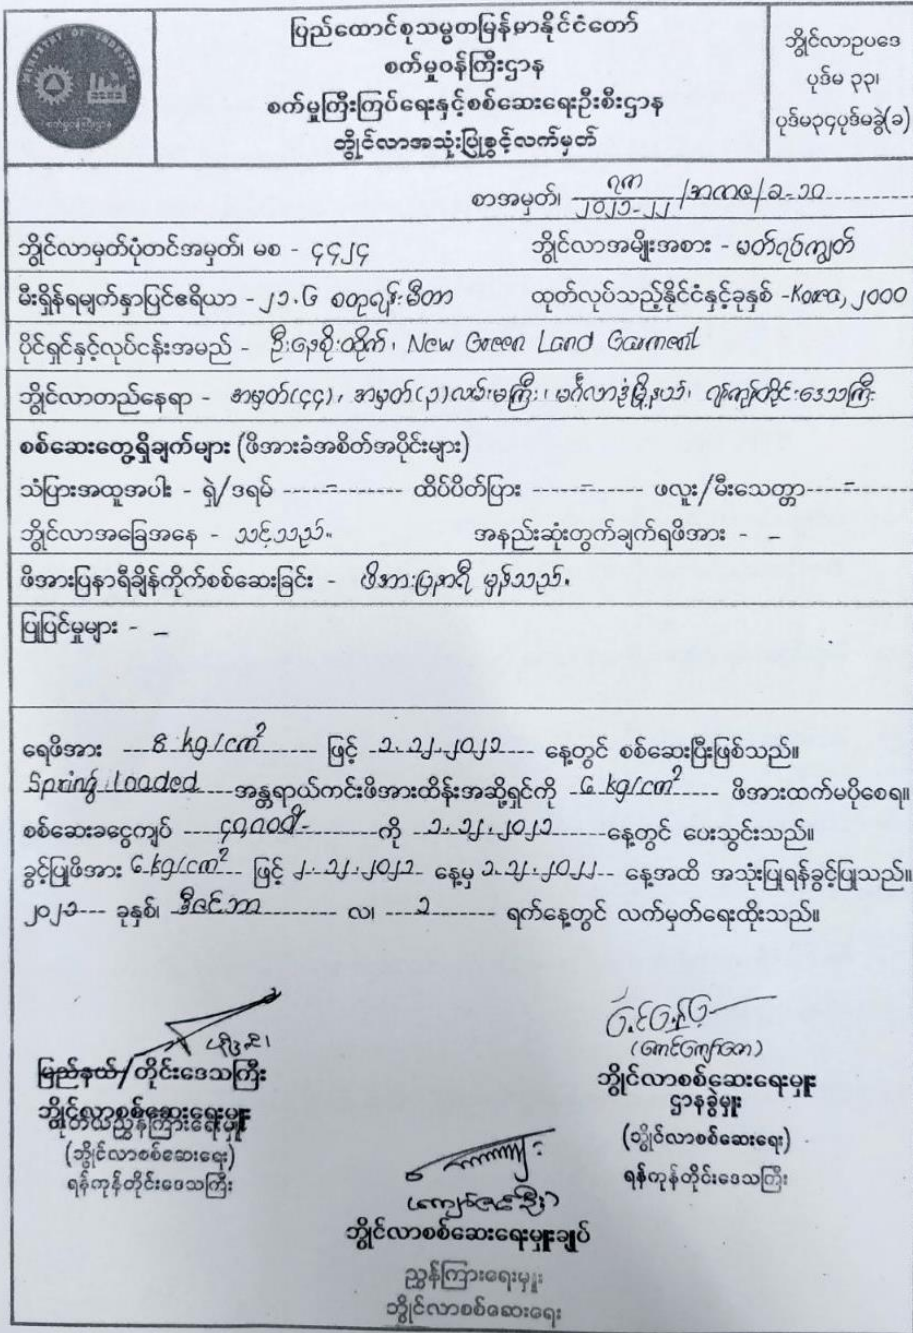 MINISTRY OF INDUSTRY
စက်မှုဝန်ကြီးဌာန
ပြည်ထောင်စုသမ္မတမြန်မာနိုင်ငံတော်
စက်မှုဝန်ကြီးဌာန
စက်မှုကြီးကြပ်ရေးနှင့်စစ်ဆေးရေးဦးစီးဌာန
ဘွိုင်လာအသုံးပြုခွင့်လက်မှတ်
ဘွိုင်လာဥပဒေ
ပုဒ်မ ၃၃၊
ပုဒ်မ၃၄ပုဒ်မခွဲ(ခ)
စာအမှတ်၊ ၇၈ / ၂၀၂၁-၂၂
ဘွိုင်လာမှတ်ပုံတင်အမှတ်၊ မစ - ၄၄၂၄ ဘွိုင်လာအမျိုးအစား - မတ်ရပ်ကျွတ်
မီးရှိန်ရမျက်နှာပြင်ဧရိယာ - ၂၁.၆ စတုရန်းမီတာ ထုတ်လုပ်သည့်နိုင်ငံနှင့်ခုနှစ် - Korea, ၂၀၀၀
ပိုင်ရှင်နှင့်လုပ်ငန်းအမည် - ဦးနေစိုးထိုက်၊ New Green Land Garment
ဘွိုင်လာတည်နေရာ - အမှတ်(၄၄)၊ အမှတ်(၃)လမ်းမကြီး၊ မင်္ဂလာဒုံမြို့နယ်၊ ရန်ကုန်တိုင်းဒေသကြီး
စစ်ဆေးတွေ့ရှိချက်များ (ဖိအားခံအစိတ်အပိုင်းများ)
သံပြားအထူအပါး - ရှဲ/ဒရမ် - ထိပ်ပိတ်ပြား - ဖလူး/မီးသေတ္တာ -
ဘွိုင်လာအခြေအနေ - သင့်သည်။ အနည်းဆုံးတွက်ချက်ရဖိအား - -
ဖိအားပြနာရီချိန်ကိုက်စစ်ဆေးခြင်း - ဖိအားပြနာရီ မှန်သည်။
ပြုပြင်မှုများ - -
ရေဖိအား 8 kg/cm² ဖြင့် ၁.၁၂.၂၀၂၁ နေ့တွင် စစ်ဆေးပြီးဖြစ်သည်။
Spring Loaded အန္တရာယ်ကင်းဖိအားထိန်းအဆို့ရှင်ကို 6 kg/cm² ဖိအားထက်မပိုစေရ။
စစ်ဆေးခငွေကျပ် ၄၀,၀၀၀/- ကို ၁.၁၂.၂၀၂၁ နေ့တွင် ပေးသွင်းသည်။
ခွင့်ပြုဖိအား 6 kg/cm² ဖြင့် ၂.၁၂.၂၀၂၁ နေ့မှ ၁.၁၂.၂၀၂၂ နေ့အထိ အသုံးပြုရန်ခွင့်ပြုသည်။
၂၀၂၁ ခုနှစ်၊ ဒီဇင်ဘာ လ၊ ၁ ရက်နေ့တွင် လက်မှတ်ရေးထိုးသည်။
ပြည်နယ်/တိုင်းဒေသကြီး
ဘွိုင်လာစစ်ဆေးရေးမှူး
ဒုတိယညွှန်ကြားရေးမှူး
(ဘွိုင်လာစစ်ဆေးရေး)
ရန်ကုန်တိုင်းဒေသကြီး
ဘွိုင်လာစစ်ဆေးရေးမှူး
ဌာနခွဲမှူး
(ဘွိုင်လာစစ်ဆေးရေး)
ရန်ကုန်တိုင်းဒေသကြီး
ဘွိုင်လာစစ်ဆေးရေးမှူးချုပ်
ညွှန်ကြားရေးမှူး
ဘွိုင်လာစစ်ဆေးရေး